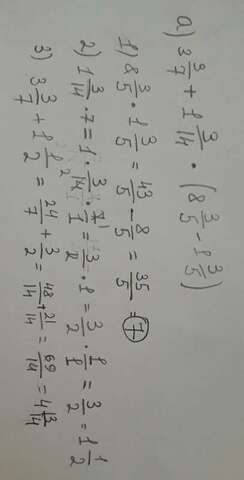 а) 3 3/7 + 1 3/14 · (8 3/5 - 1 3/5)
1) 8 3/5 · 1 3/5 = 43/5 - 8/5 = 35/5 = 7
2) 1 3/14 · 7 = 1 · 3/14 · 7/1 = 3/2 · 1 = 3/2 · 1/1 = 3/2 = 1 1/2
3) 3 3/7 + 1 1/2 = 24/7 + 3/2 = 48/14 + 21/14 = 69/14 = 4 13/14